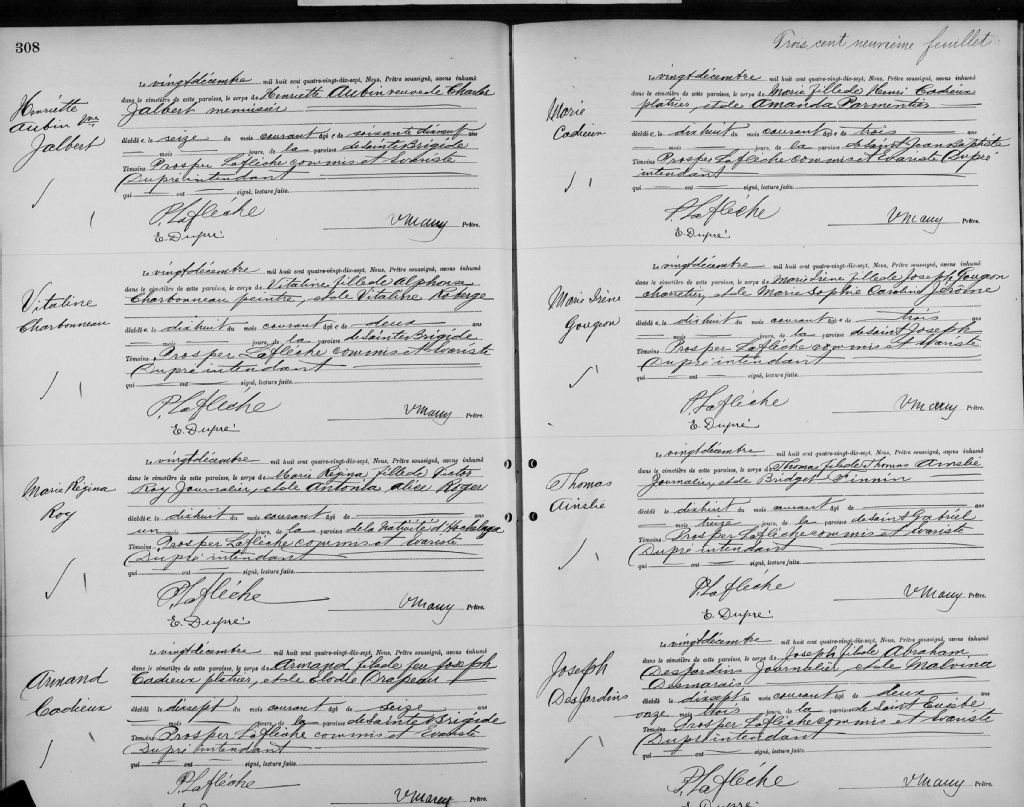 308
Henriette
Aubin Vve
Jalbert
Le vingt décembre mil huit cent quatre-vingt-dix-sept, Nous, Prêtre soussigné, avons inhumé
dans le cimetière de cette paroisse, le corps de Henriette Aubin veuve de Charles
Jalbert menuisier
décédée le seize du mois courant âgée de soixante dixneuf ans
mois jours, de la paroisse de Sainte Brigide
Témoins Prosper Laflèche commis et Evariste
Dupré intendant
qui ont signé, lecture faite.
P. Laflèche
E. Dupré
Prêtre.
Vitaline
Charbonneau
Le vingt décembre mil huit cent quatre-vingt-dix-sept, Nous, Prêtre soussigné, avons inhumé
dans le cimetière de cette paroisse, le corps de Vitaline fille de Alphonse
Charbonneau peintre, et de Vitaline Roberge
décédée le dixhuit du mois courant âgée de deux ans
mois jours, de la paroisse de Sainte Brigide
Témoins Prosper Laflèche commis et Evariste
Dupré intendant
qui ont signé, lecture faite.
P. Laflèche
E. Dupré
Prêtre.
Marie Régina
Roy
Le vingt décembre mil huit cent quatre-vingt-dix-sept, Nous, Prêtre soussigné, avons inhumé
dans le cimetière de cette paroisse, le corps de Marie Régina fille de Victor
Roy Journalier, et de Antonia Alice Roger
décédée le dixhuit du mois courant âgé de
un mois jours, de la paroisse de la Nativité d'Hochelaga
Témoins Prosper Laflèche commis et Evariste
Dupré intendant
qui ont signé, lecture faite.
P. Laflèche
E. Dupré
Prêtre.
Armand
Cadieux
Le vingt décembre mil huit cent quatre-vingt-dix-sept, Nous, Prêtre soussigné, avons inhumé
dans le cimetière de cette paroisse, le corps de Armand fils de feu Joseph
Cadieux platrier, et de Elodie Drapeau
décédé le dixsept du mois courant âgé de seize ans
mois jours, de la paroisse de Sainte Brigide
Témoins Prosper Laflèche commis et Evariste
Dupré Intendant
qui ont signé, lecture faite.
P. Laflèche
Prêtre.
Trois cent neuvième feuillet
Marie
Cadieux
Le vingt décembre mil huit cent quatre-vingt-dix-sept, Nous, Prêtre soussigné, avons inhumé
dans le cimetière de cette paroisse, le corps de Marie fille de Henri Cadieux
platrier, et de Amanda Parmentier
décédée le dixhuit du mois courant âgée de trois ans
mois jours, de la paroisse de Saint Jean Baptiste
Témoins Prosper Laflèche commis et Evariste Dupré
intendant
qui ont signé, lecture faite.
P. Laflèche
E. Dupré
Prêtre.
Marie Irène
Gougeon
Le vingt décembre mil huit cent quatre-vingt-dix-sept, Nous, Prêtre soussigné, avons inhumé
dans le cimetière de cette paroisse, le corps de Marie Irène fille de Joseph Gougeon
charretier, et de Marie Sophie Caroline Jérôme
décédée le dixhuit du mois courant âgée de trois ans
mois jours, de la paroisse de Saint Joseph
Témoins Prosper Laflèche commis et Evariste
Dupré intendant
qui ont signé, lecture faite.
P. Laflèche
E. Dupré
Prêtre.
Thomas
Ainslie
Le vingt décembre mil huit cent quatre-vingt-dix-sept, Nous, Prêtre soussigné, avons inhumé
dans le cimetière de cette paroisse, le corps de Thomas fils de Thomas Ainslie
Journalier, et de Bridget Finnin
décédé le dixhuit du mois courant âgé de ans
mois treize jours, de la paroisse de Saint Gabriel
Témoins Prosper Laflèche commis et Evariste
Dupré intendant
qui ont signé, lecture faite.
P. Laflèche
E. Dupré
Prêtre.
Joseph
DesJardins
Le vingt décembre mil huit cent quatre-vingt-dix-sept, Nous, Prêtre soussigné, avons inhumé
dans le cimetière de cette paroisse, le corps de Joseph fils de Abraham
DesJardin Journalier, et de Malvina
Desmarais
décédé le dixsept du mois courant âgé de deux ans
onze mois trois jours, de la paroisse de Saint Eusèbe
Témoins Prosper Laflèche commis et Evariste
Dupré intendant
qui ont signé, lecture faite.
P. Laflèche
E. Dupré
Prêtre.